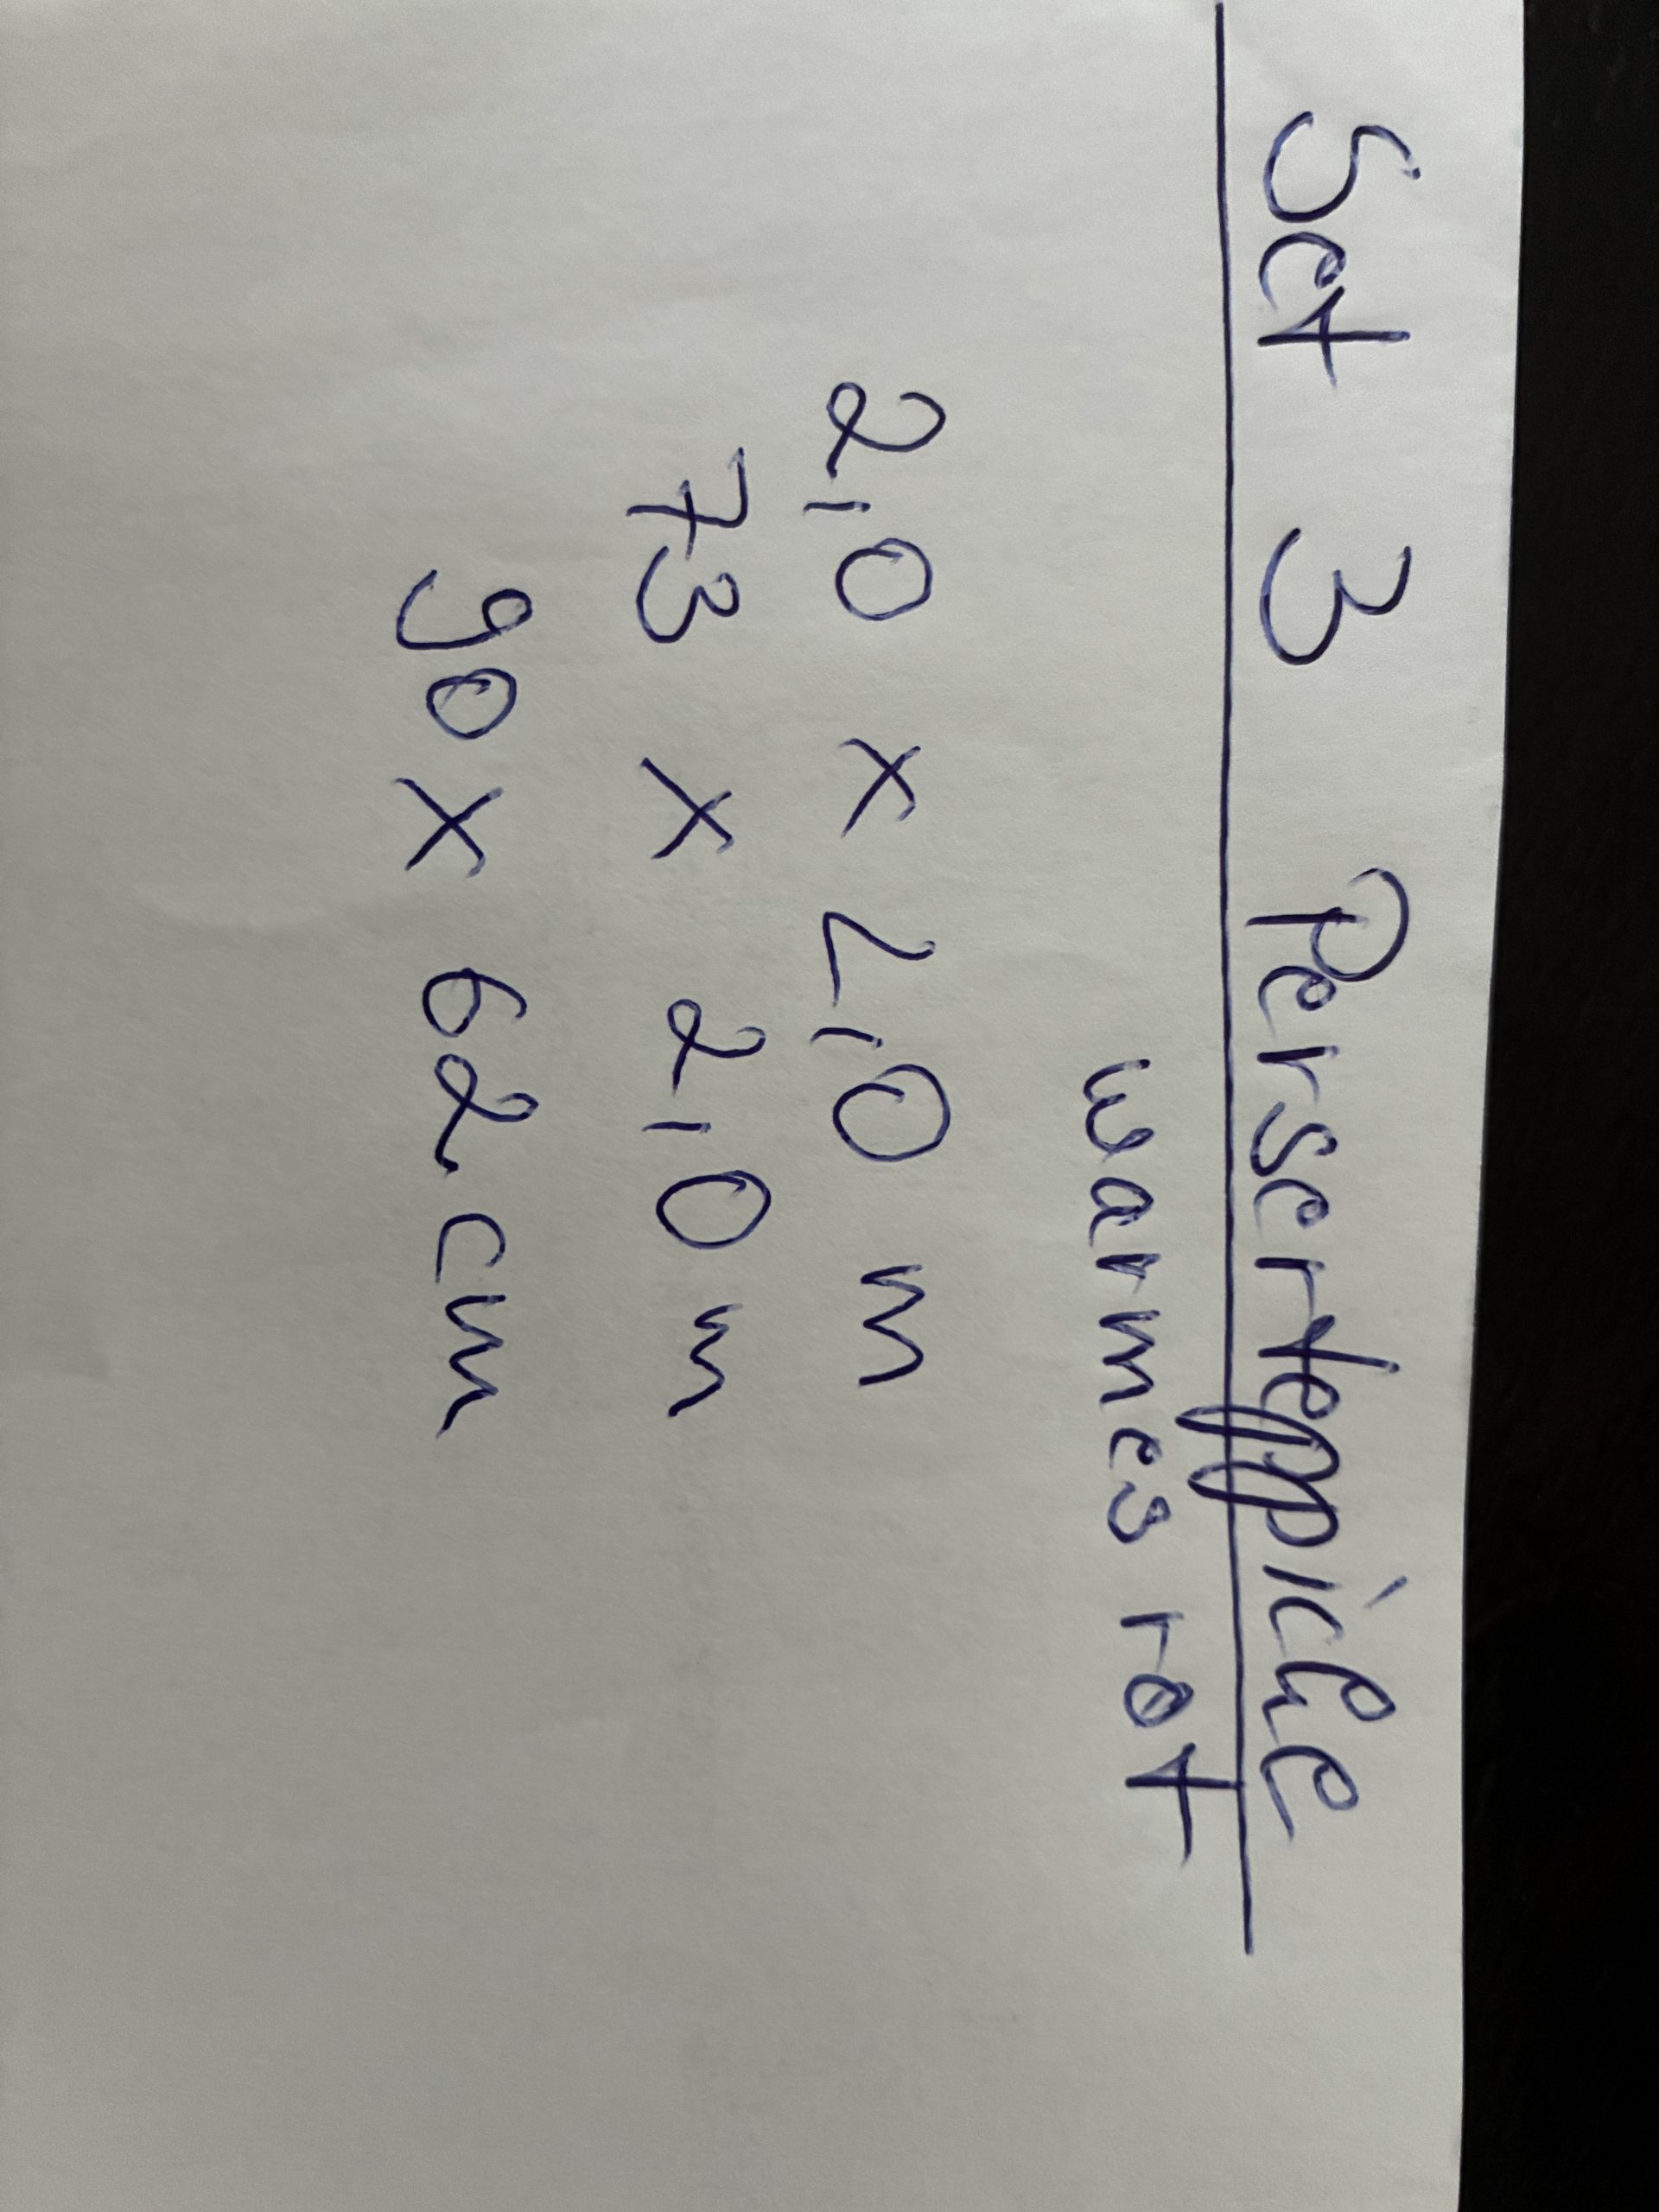 Set 3 Perserteppiche
warmes rot
2,0 x 2,0 m
73 x 2,0 m
90 x 62 cm